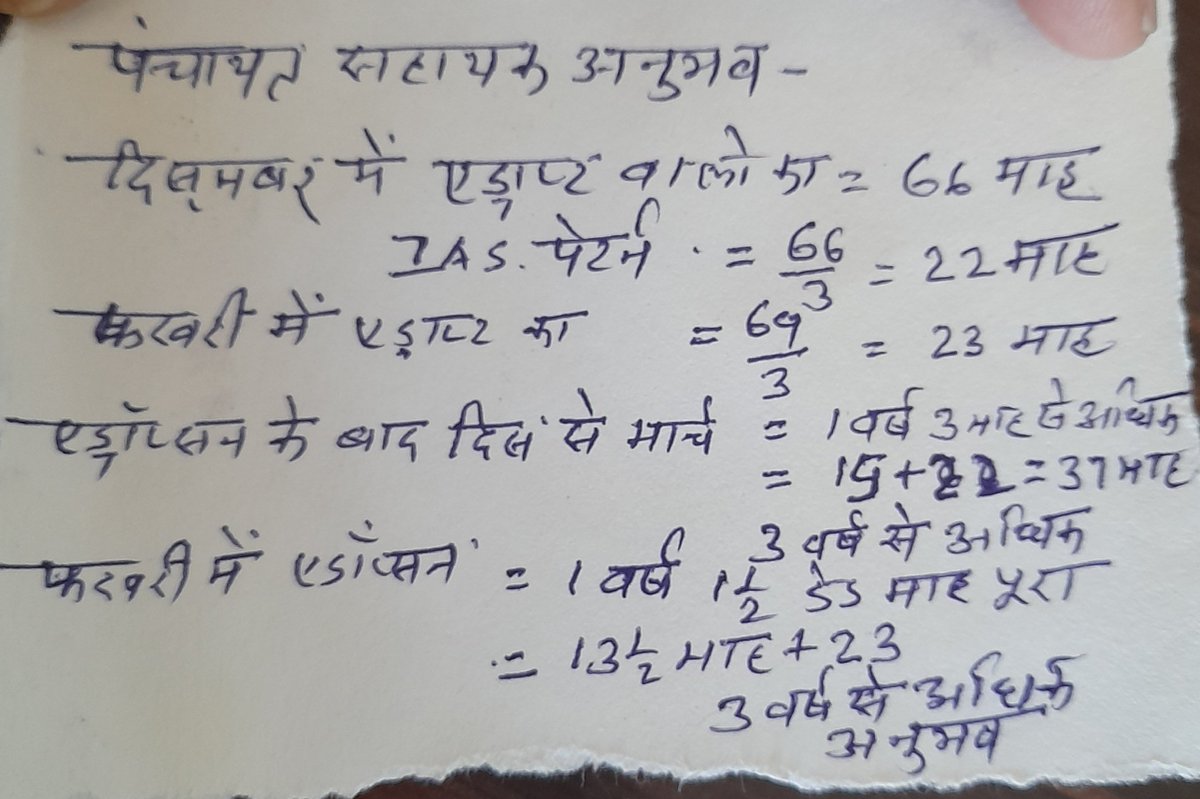 पंचायत सहायक अनुभव -
दिसम्बर में एड्राप्ट वालो का = 66 माह
IAS. पेटर्न = 66/3 = 22 माह
फरवरी में एड्राप्ट का = 69/3 = 23 माह
एड्रॉप्सन के बाद दिस से मार्च = 1 वर्ष 3 माह से अधिक
= 15 + 22 = 37 माह
3 वर्ष से अधिक
फरवरी में एडॉप्सन = 1 वर्ष 1 1/2 डेड माह पूरा
= 13 1/2 माह + 23
3 वर्ष से अधिक
अनुभव